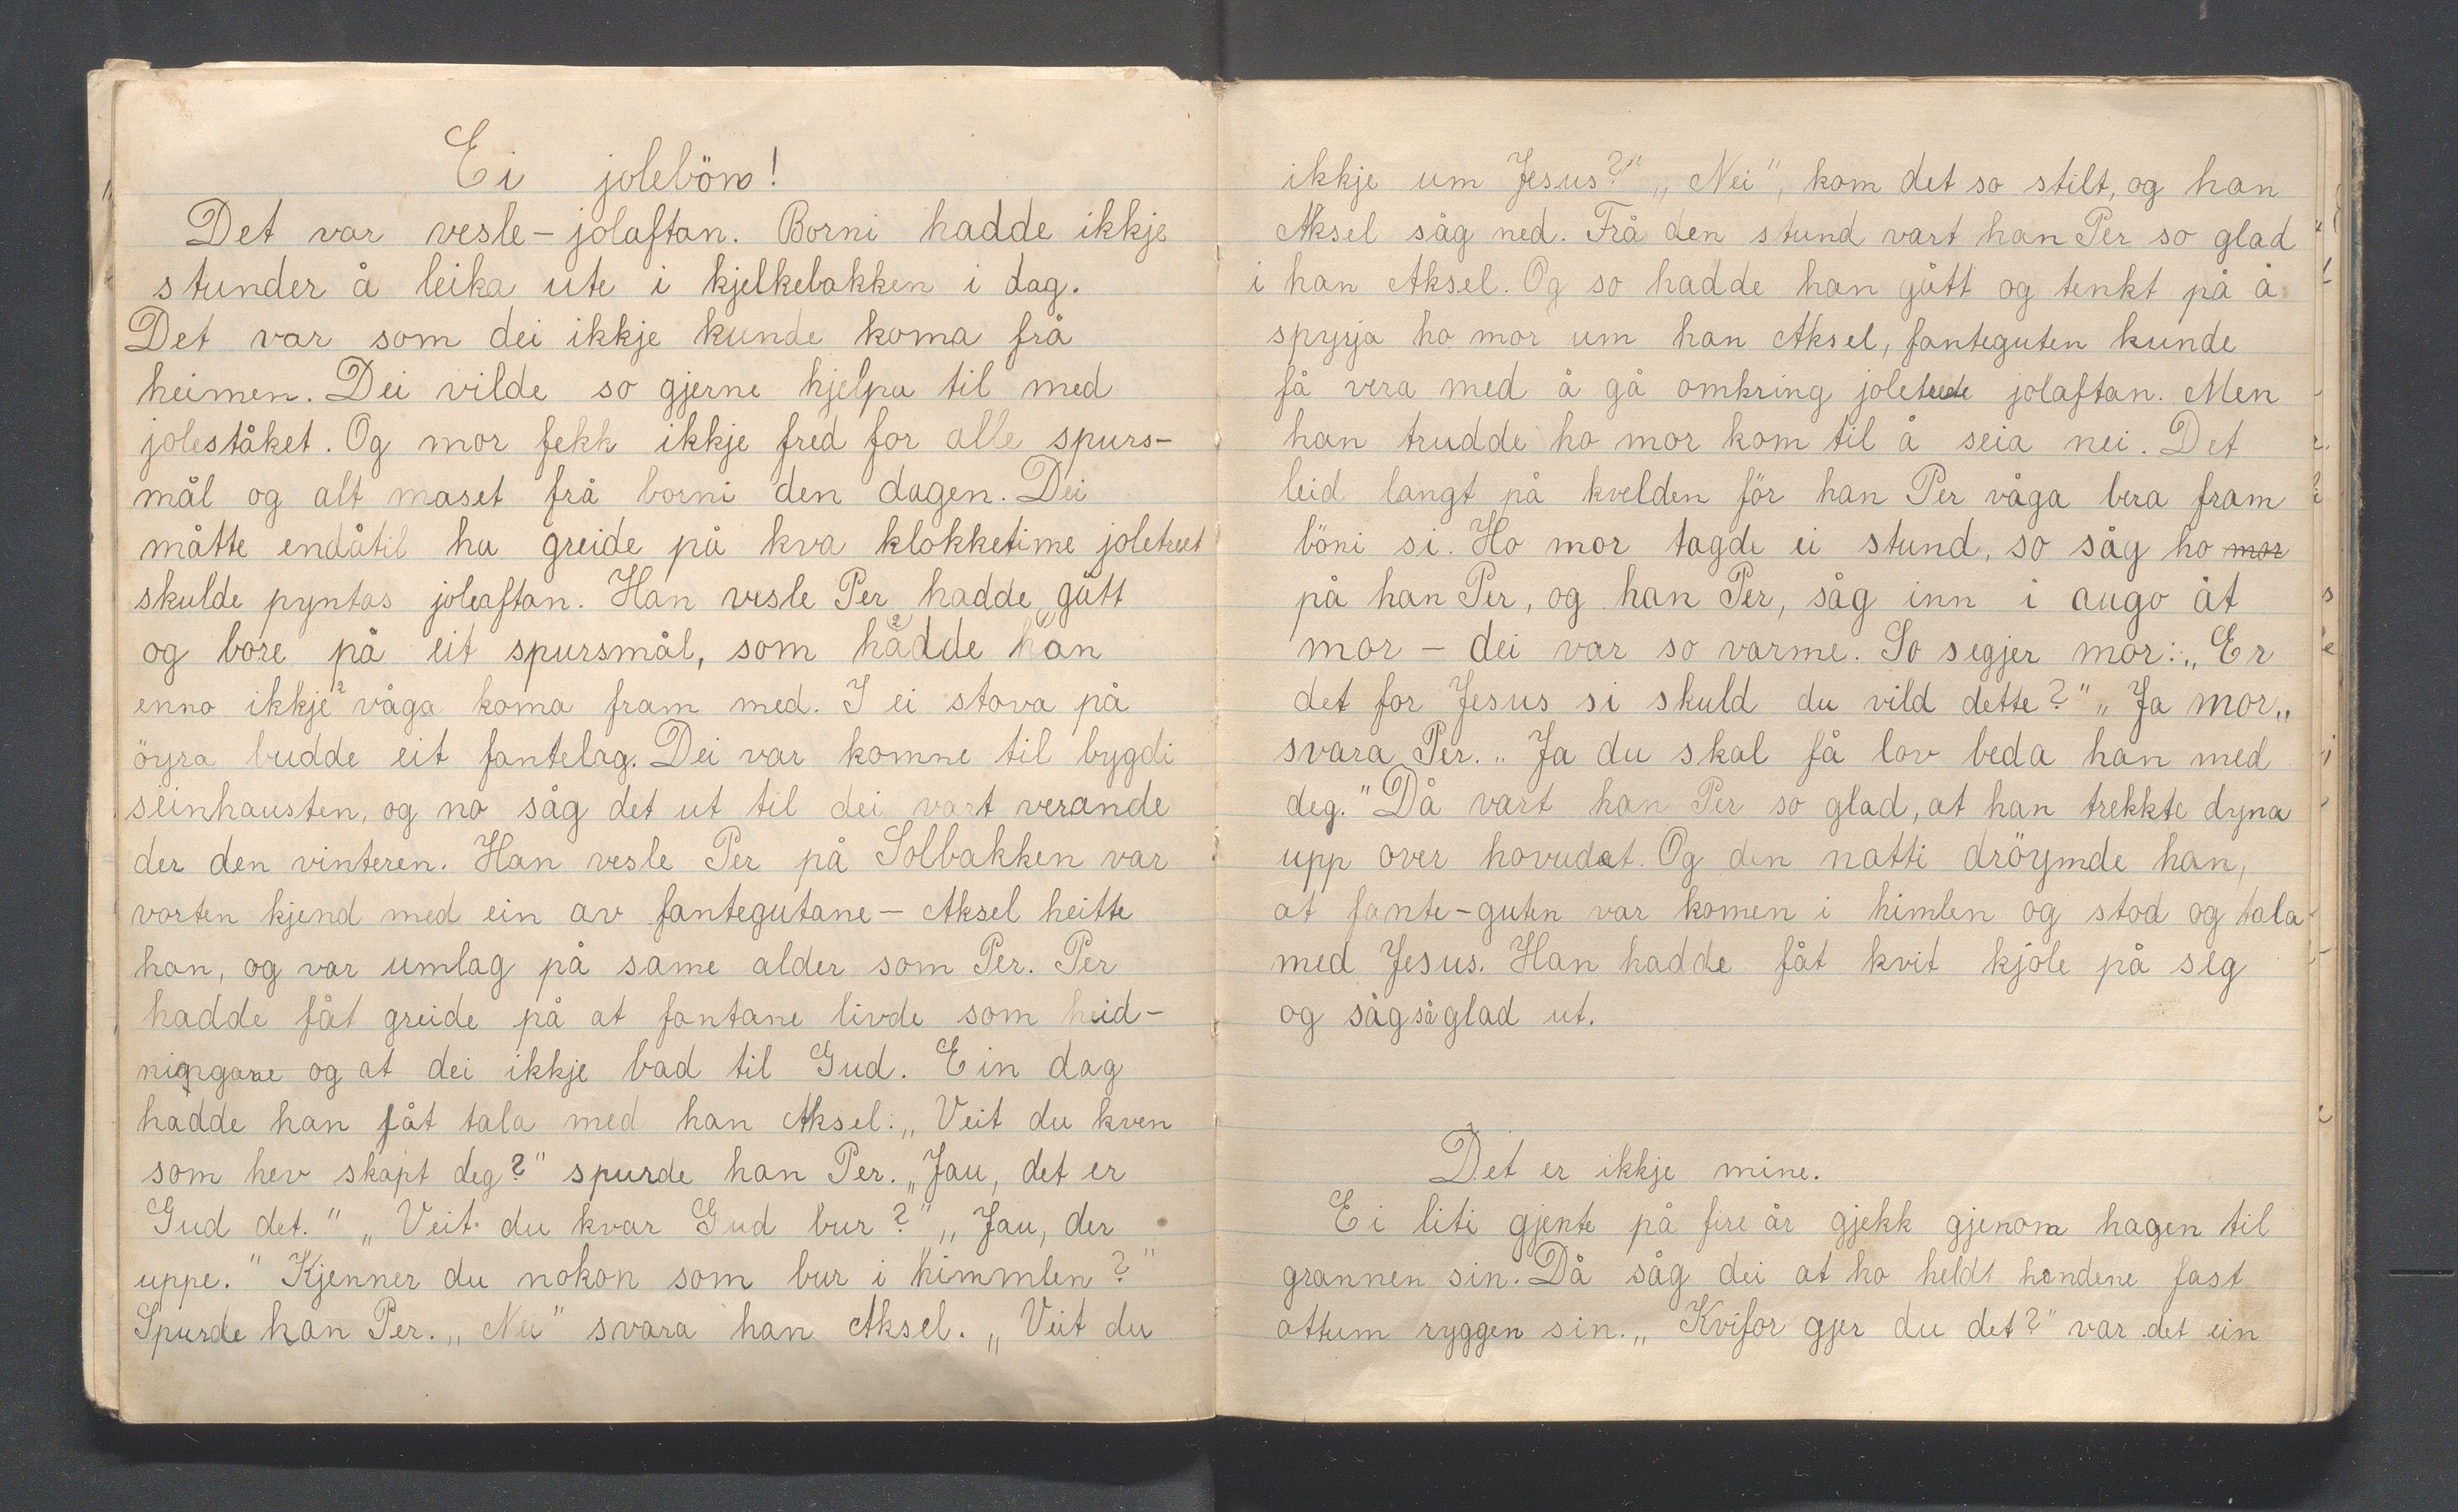 Ei jolebön!
Det var vesle-jolaftan. Borni hadde ikkje
stunder å leika ute i kjelkebakken i dag.
Det var som dei ikkje kunde koma frå
heimen. Dei vilde so gjerne hjelpa til med
joleståket. Og mor fekk ikkje fred for alle spurs-
mål og alt maset frå borni den dagen. Dei
måtte endåtil ha greide på kva klokketime joletreet
skulde pyntas joleaftan. Han vesle Per hadde gått
og bore på eit spursmål, som hadde han
enno ikkje våga koma fram med. I ei stova på
öyra budde eit fantelag. Dei var komne til bygdi
seinhausten, og no såg det ut til dei vart verande
der den vinteren. Han vesle Per på Solbakken var
vorten kjend med ein av fantegutane - Aksel heitte
han, og var umlag på same alder som Per. Per
hadde fåt greide på at fantane livde som heid-
ningane og at dei ikkje bad til Gud. Ein dag
hadde han fåt tala med han Aksel: „Veit du kven
som hev skapt deg?" spurde han Per. „Jau, det er
Gud det." „Veit du kvar Gud bur?" „Jau, der
uppe." Kjenner du nokon som bur i himmlen?"
Spurde han Per. „Nei" svara han Aksel. „Veit du
ikkje um Jesus?" „Nei", kom det so stilt, og han
Aksel såg ned. Frå den stund vart han Per so glad
i han Aksel. Og so hadde han gått og tenkt på å
spyrja ho mor um han Aksel, fanteguten kunde
få vera med å gå omkring joletrede jolaftan. Men
han trudde ho mor kom til å seia nei. Det
leid langt på kvelden för han Per våga bera fram
böni si. Ho mor tagde ei stund, so såg ho mor
på han Per, og han Per, såg inn i augo åt
mor - dei var so varme. So segjer mor: „Er
det for Jesus si skuld du vild dette?" „Ja mor„
svara Per. „Ja du skal få lov beda han med
deg." Då vart han Per so glad, at han trekkte dyna
upp over hovudet. Og den natti dröymde han,
at fante-guten var komen i himlen og stod og tala
med Jesus. Han hadde fåt kvit kjole på seg
og såg så glad ut.
Det er ikkje mine.
Ei liti gjente på fire år gjekk gjenom hagen til
grannen sin. Då såg dei at ho heldt hendene fast
attum ryggen sin. „Kvifor gjer du det?" var det ein